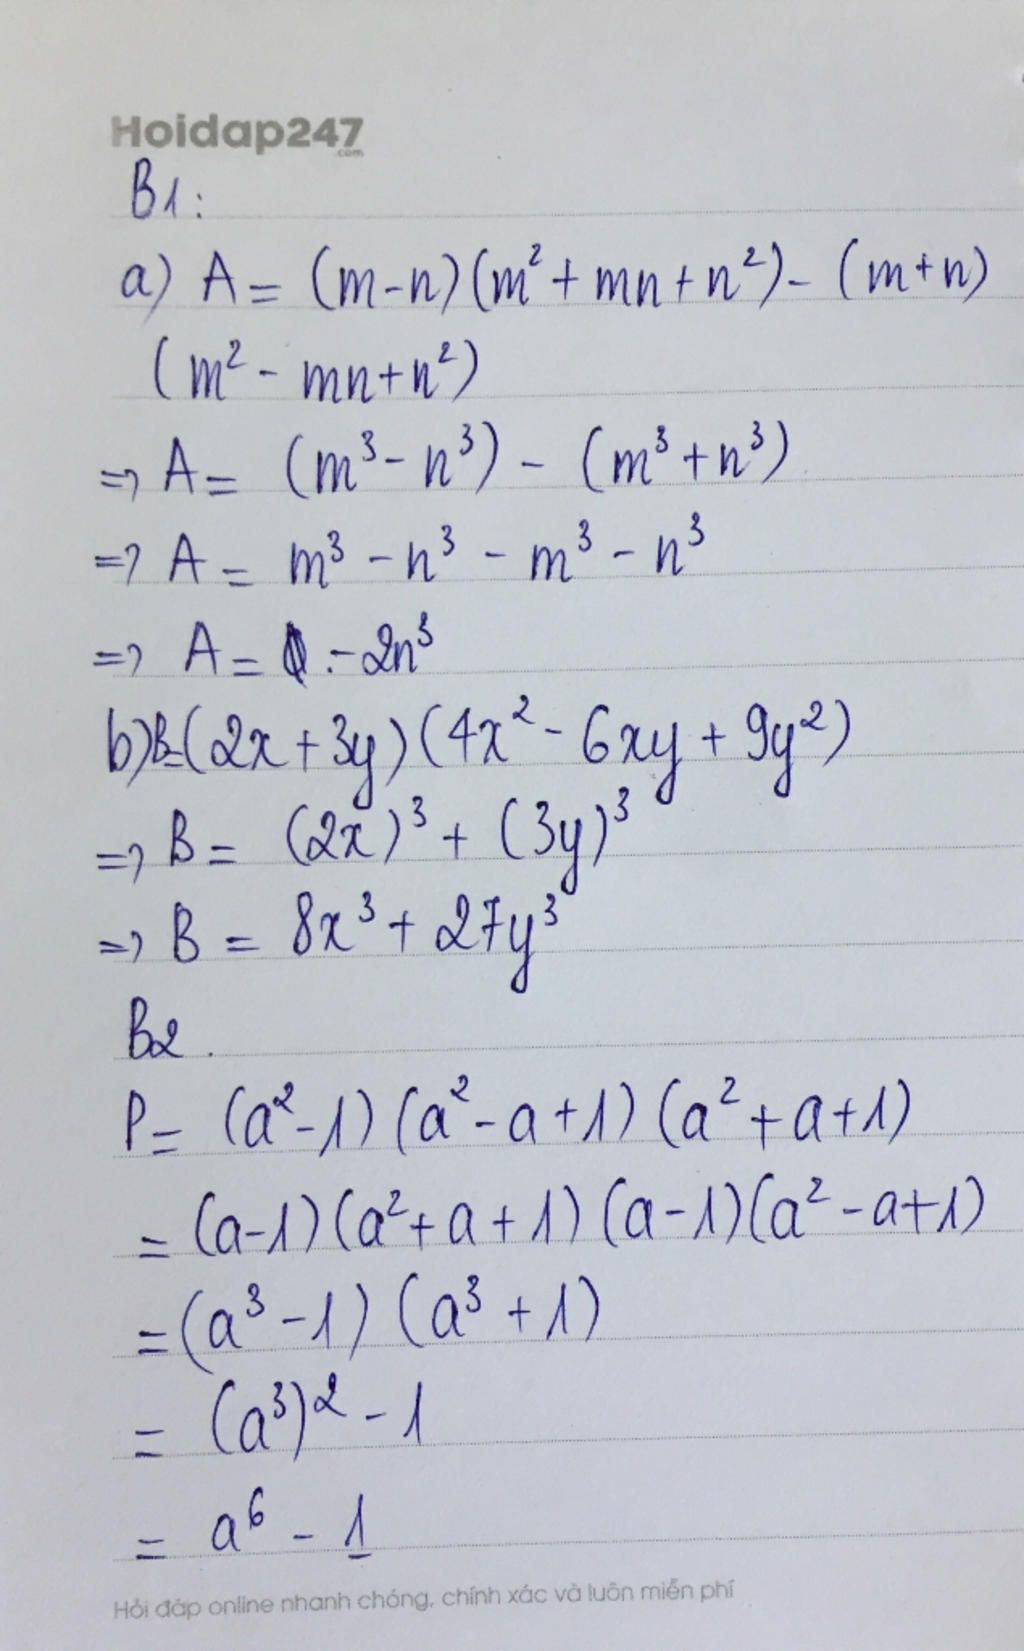 Hoidap247
.com
B1:
a) A = (m-n)(m² + mn + n²) - (m+n)
(m² - mn + n²)
=> A = (m³ - n³) - (m³ + n³)
=> A = m³ - n³ - m³ - n³
=> A = -2n³
b) B=(2x + 3y)(4x² - 6xy + 9y²)
=> B = (2x)³ + (3y)³
=> B = 8x³ + 27y³
B2.
P = (a² - 1)(a² - a + 1)(a² + a + 1)
= (a-1)(a² + a + 1)(a-1)(a² - a + 1)
= (a³ - 1)(a³ + 1)
= (a³)² - 1
= a⁶ - 1
Hỏi đáp online nhanh chóng, chính xác và luôn miễn phí